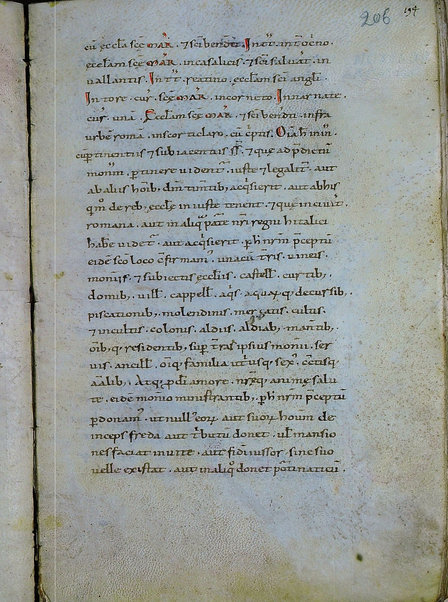 206 194
cū eccła scē MAR̃ . & scī bendet̃ . In tt̃ . int̃ ocno .
ecclam scę MAR̃ . in casalicis . & scī saluat̃ . in
uallantis . In tt̃ . reatino . ecclam scī angłi .
In tore . cur̃ . scę MAR̃ . in cornetto . In narnate .
cur̃ . unā . Ecclam scę MAR̃ . & scī bendti . infra
urbē romā . in scorticlaro . cū
ptinentiis & subiacentiis & quę ad p̄dictū
monim̃ . ptinere uident̃ . iuste & legalit̃ . aut
ab aliis hoīb; dīm timtib; acq̃sierit . aut ab his
qm̃ de reb; ecclę iniuste tenent . & que in ciuit̃ .
romana . aut in aliq̃ parte nr̃i regni hitalici
habe uidet̃ . aut acq̃sierit . p h nrm̃ p̄ceptū
eidē scō loco c̃firmam̃ . una cū tr̃is . uineis .
moniis̃ . & subiectis eccłiis . castell̃ . curtib; .
domib; . uill̃ . cappell̃ . aq̃s . aquarq; decursib; .
piscationib; . molendinis . mercatis . cultis .
& incultis . colonis . aldiis . aldiab; . mantib; .
oīb; q; residentib; sup̃ t̃ras ipsius monii . ser
uis . ancill̃ . oīq; familia utr̃usq; sex̃ . cet̃isq;
aalib; . Atq; p dī amore . nręq; animę salu
te . eidē monio ministrantib; . p h nrm̃ p̄ceptū
pdonam̃ . ut null̃ eor̃ aut suor̃ houm̃ de
inceps freda aut t̃butū donet . ul̃ mansio
nes faciat inuite . aut fidiussor . sine suo
uelle existat . aut in aliq̃ donet